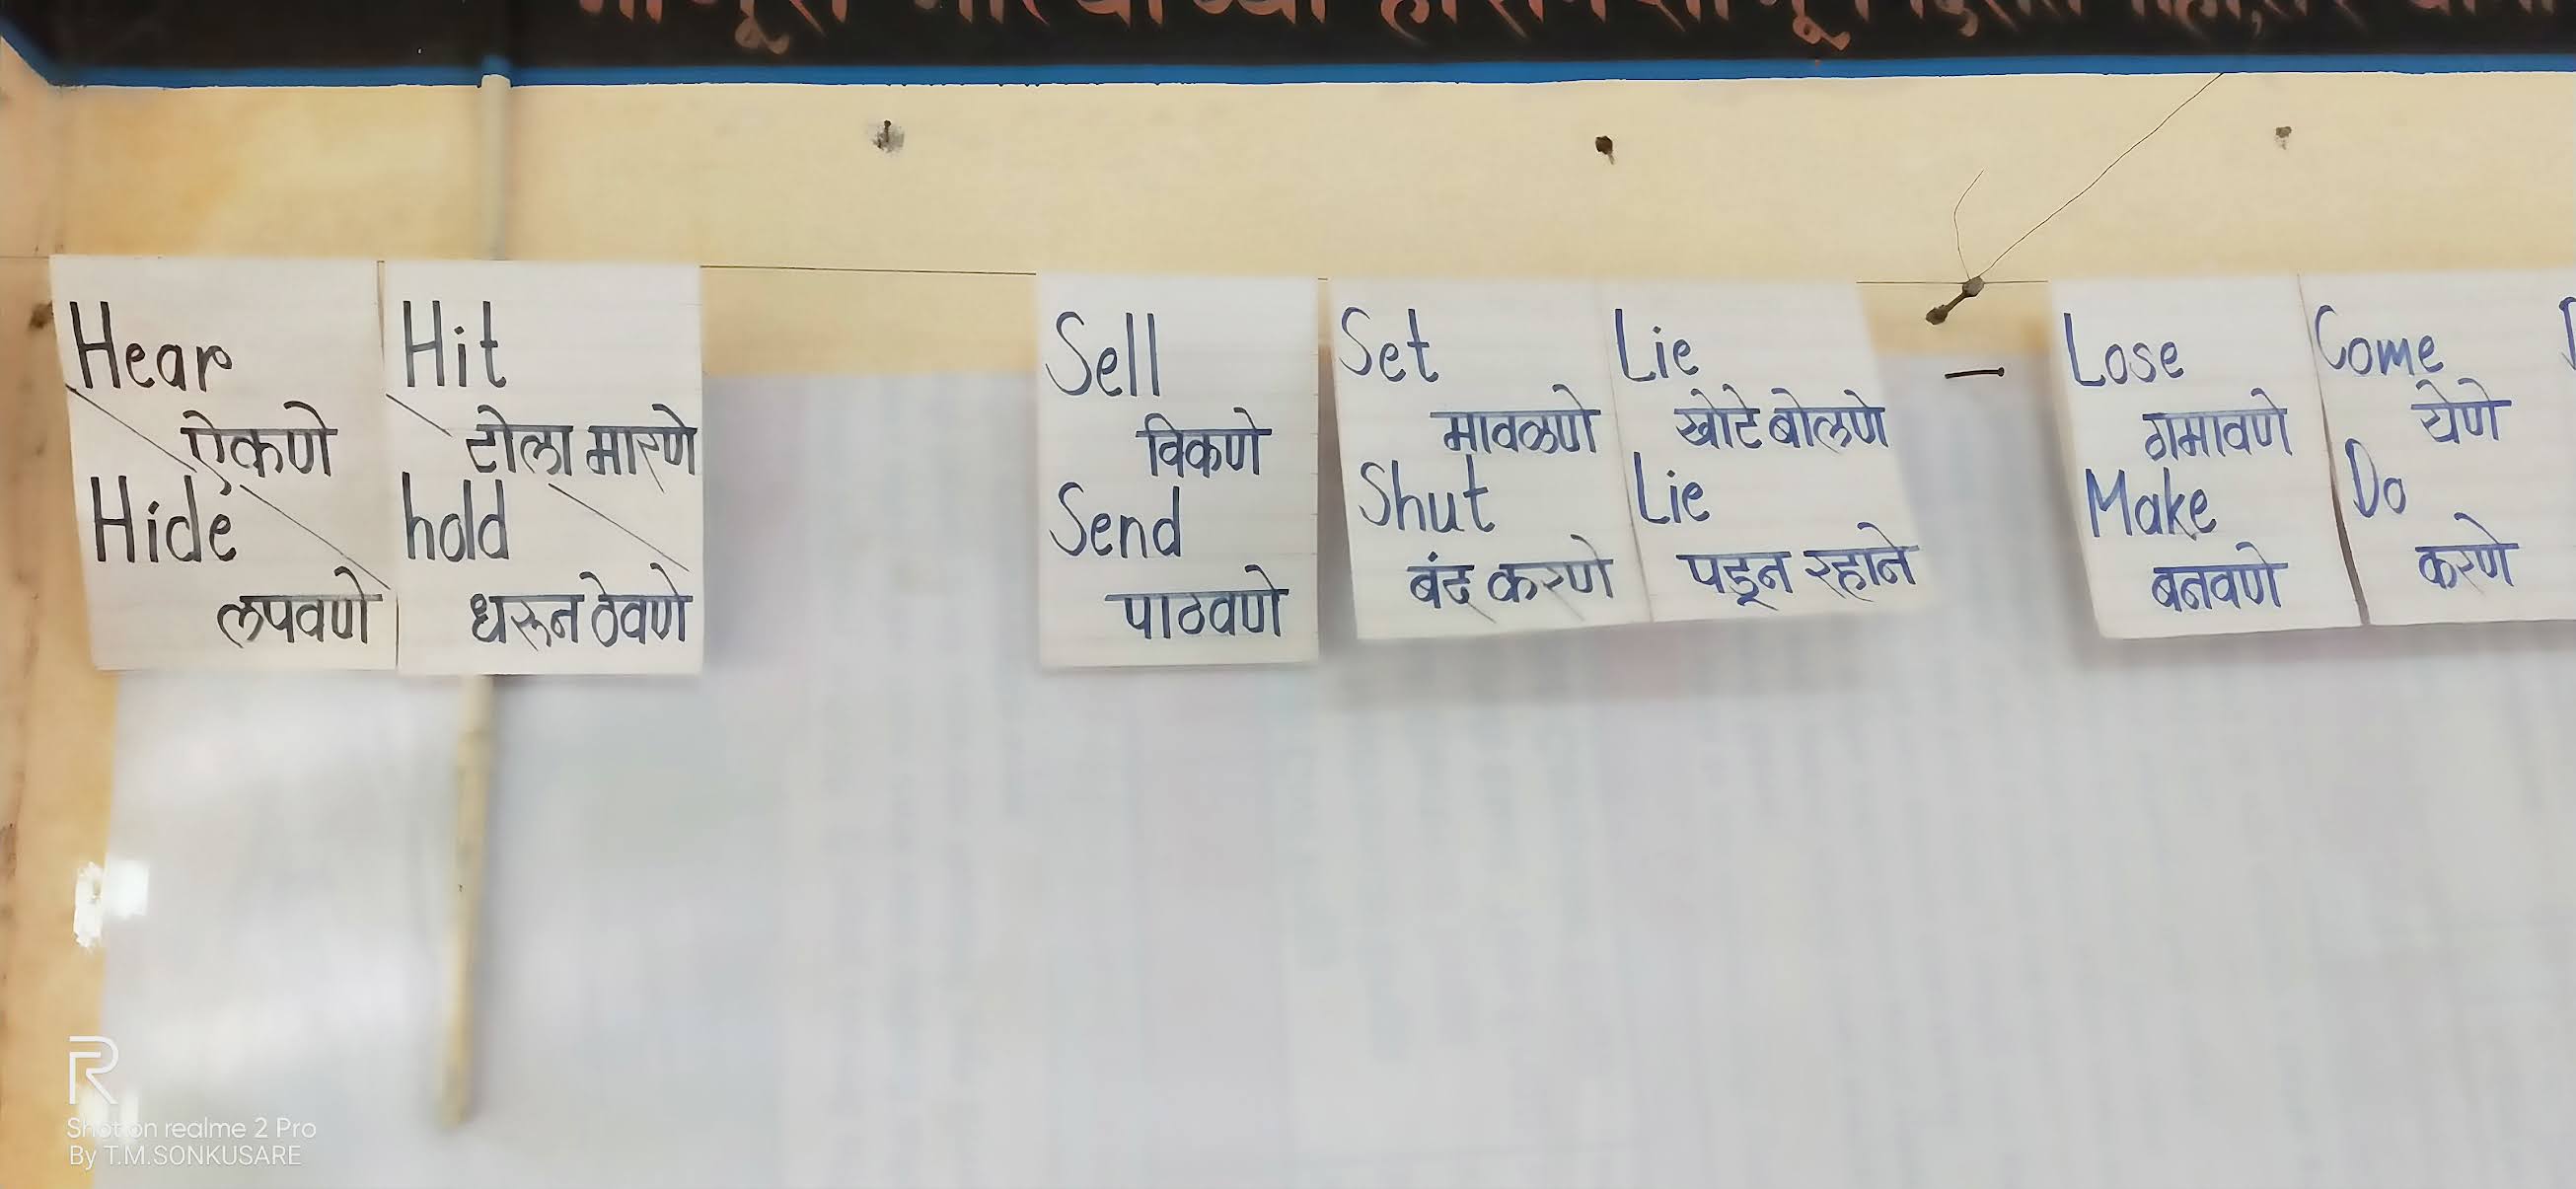 Hear
ऐकणे
Hide
लपवणे
Hit
टोला मारणे
hold
धरून ठेवणे
Sell
विकणे
Send
पाठवणे
Set
मावळणे
Shut
बंद करणे
Lie
खोटे बोलणे
Lie
पडून रहाने
Lose
गमावणे
Make
बनवणे
Come
येणे
Do
करणे
Shot on realme 2 Pro
By T.M.SONKUSARE